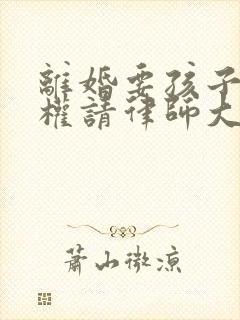 離婚要孩子
權請律師大
蕭山微涼